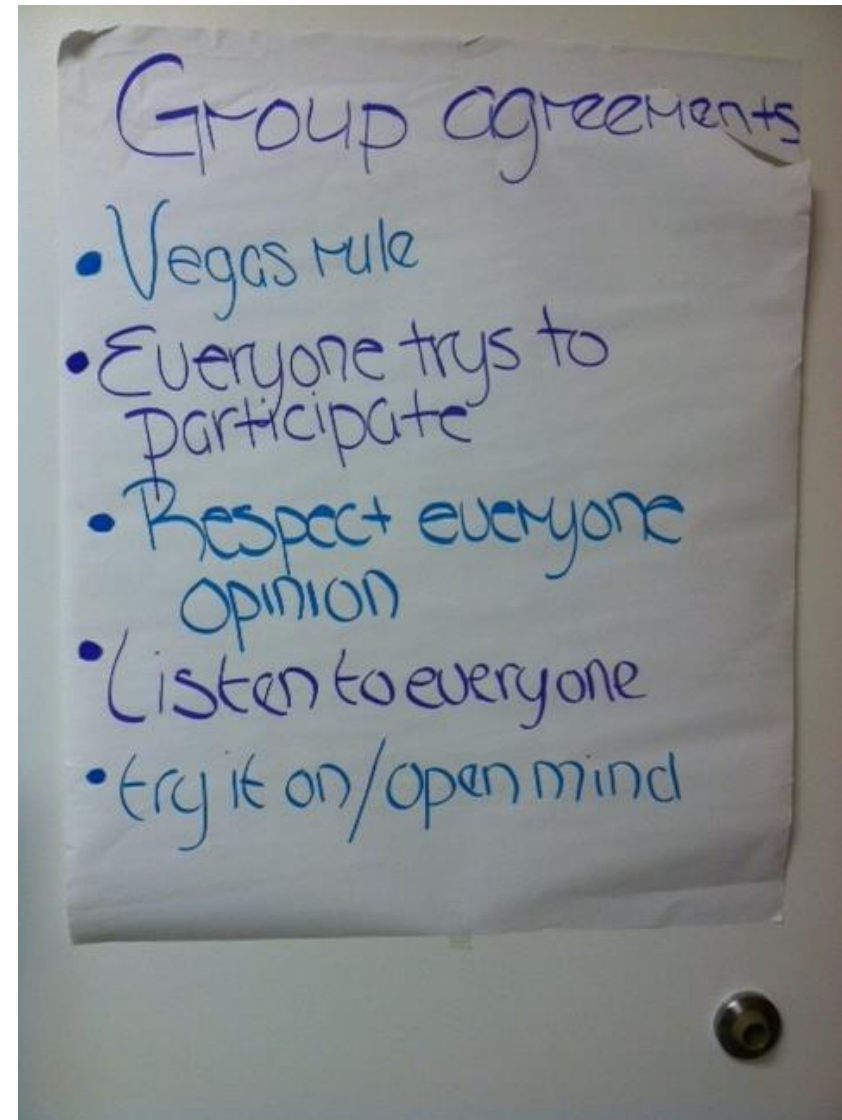 Group agreements
• Vegas rule
• Everyone trys to
participate
• Respect everyone
opinion
• Listen to everyone
• try it on/open mind